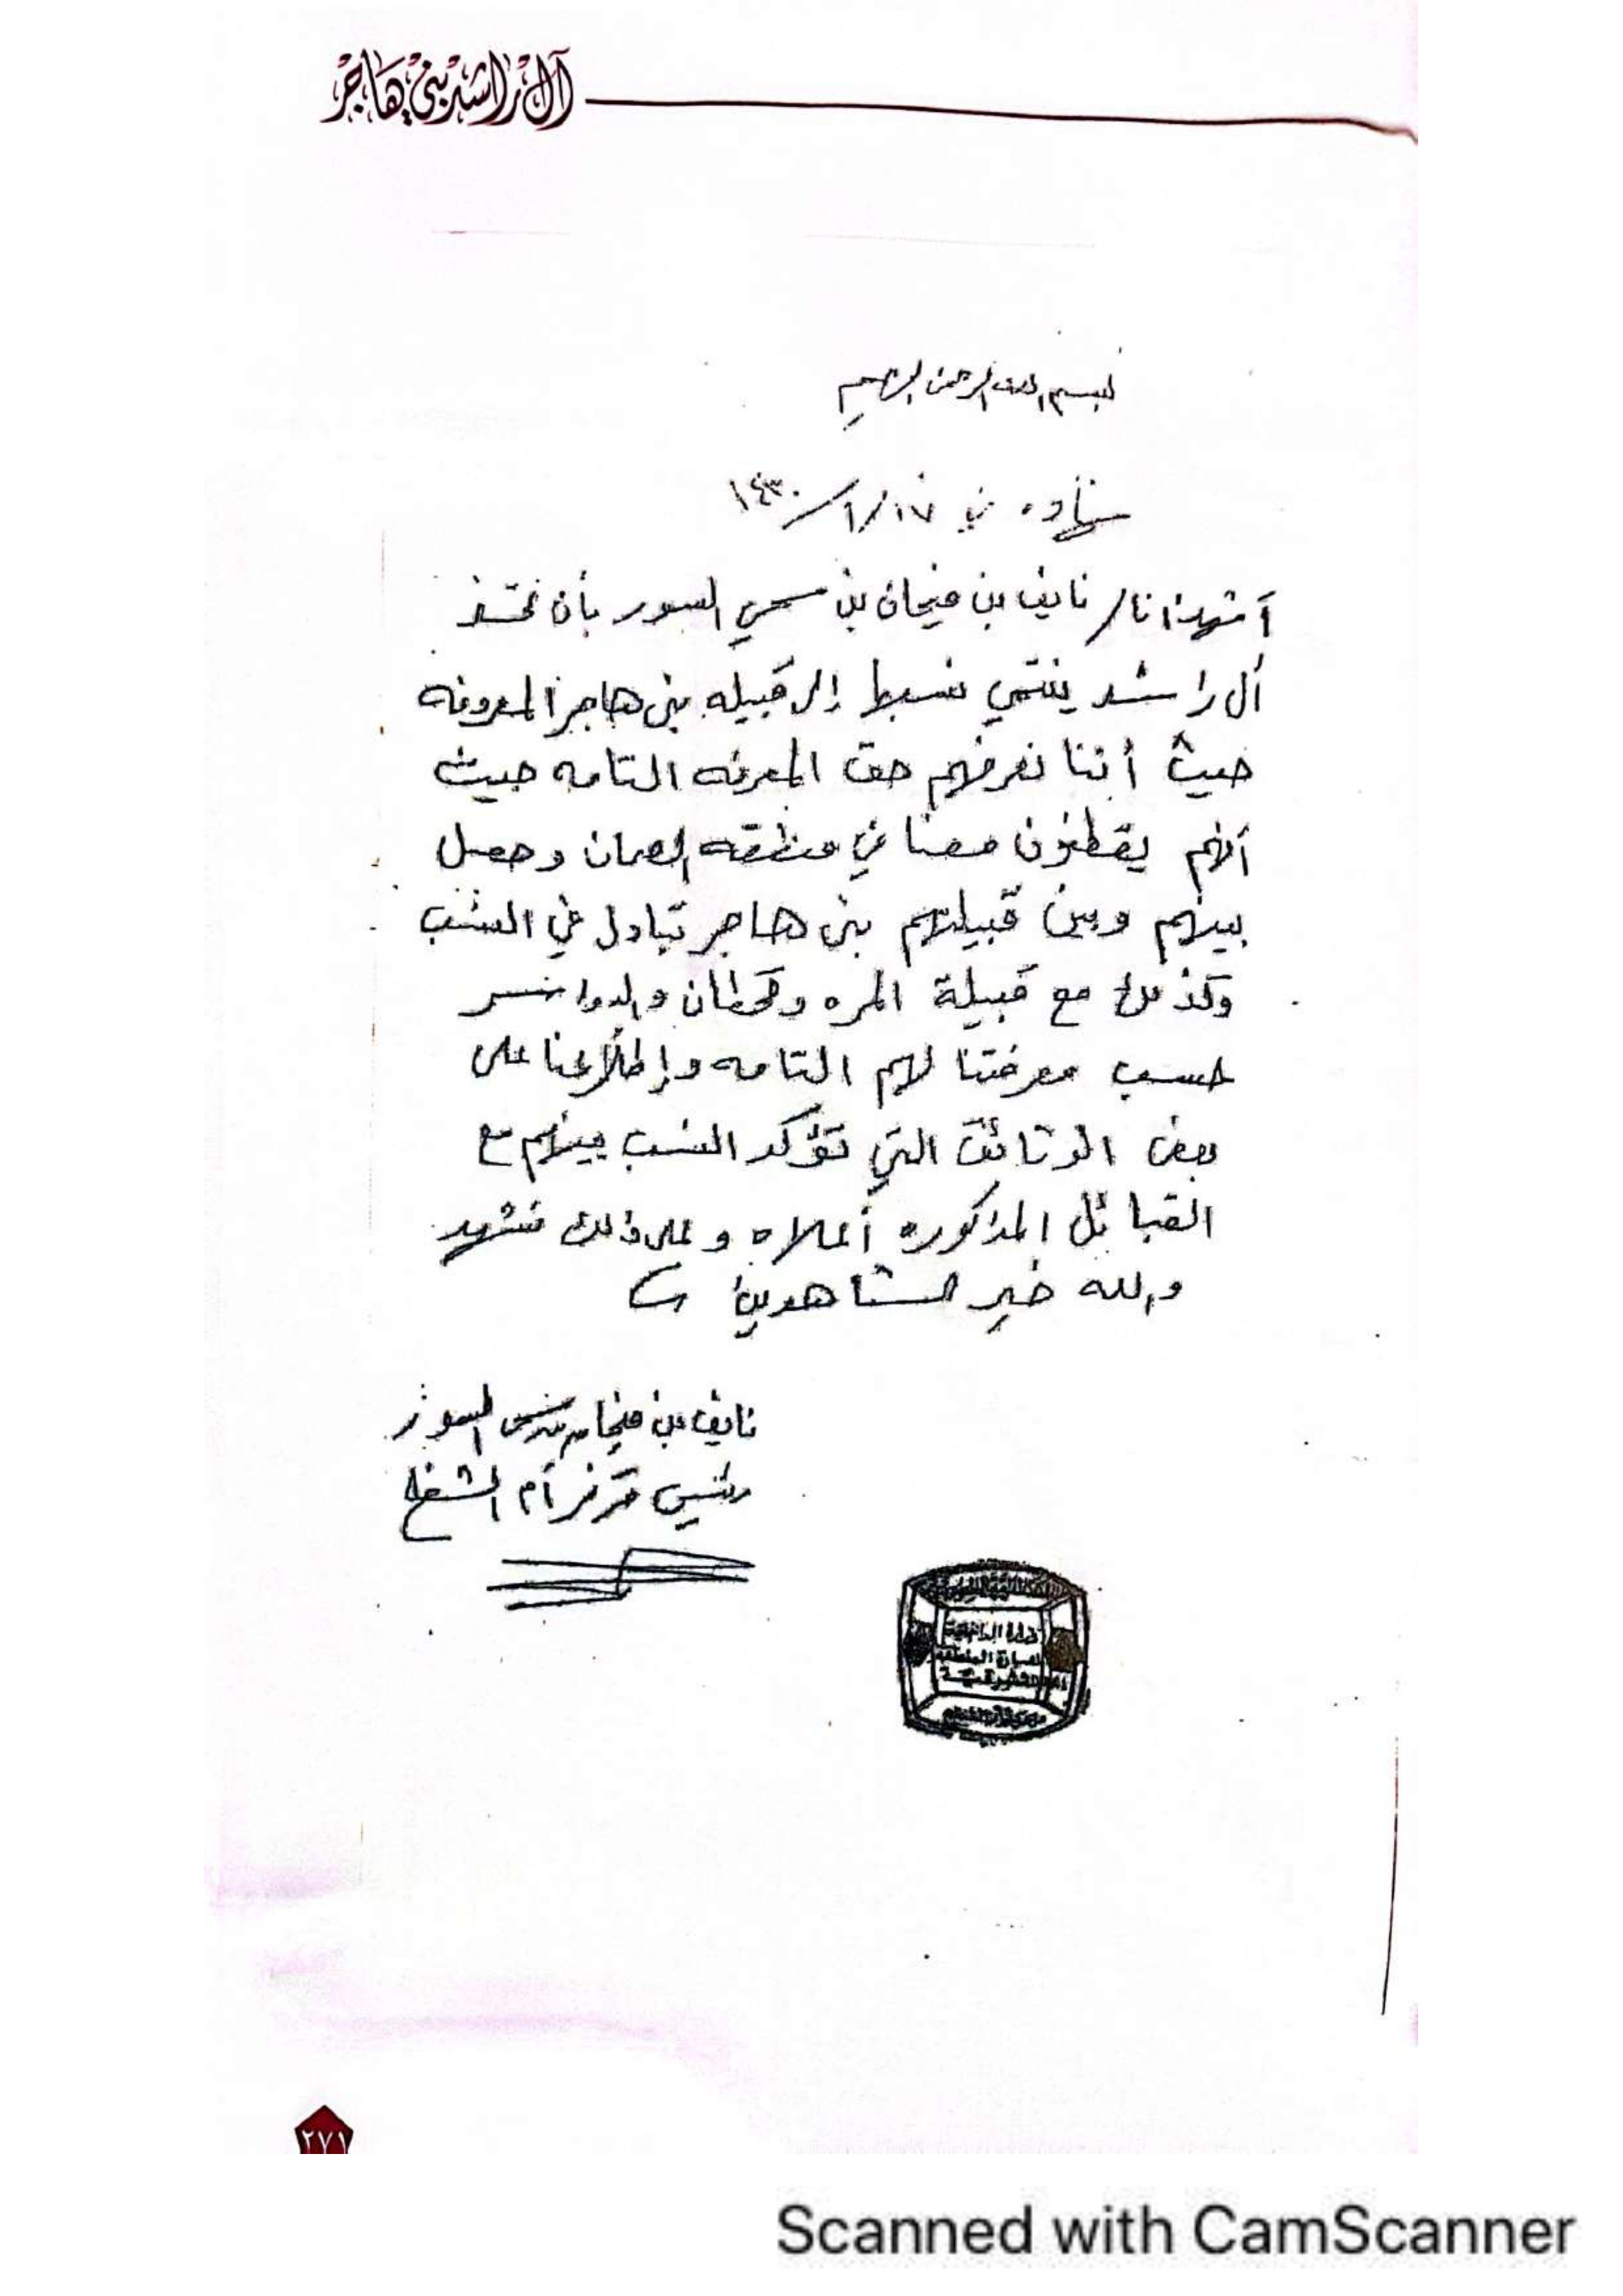 آل راشد بني هاجر
بسم الله الرحمن الرحيم
شهاده في ١٧/ ١/ ١٤٣٠
أشهد انا/ نايف بن فيحان بن السور بأن فخذ
أل راشد ينتمي نسبها إلى قبيله بني هاجر المعروفه
حيث أننا نعرفهم حق المعرفه التامه حيث
أنهم يقطنون معنا في منطقه الصمان وحصل
بينهم وبين قبيلتهم بني هاجر تبادل في النسب
وكذلك مع قبيلة المره وقحطان والدواسر
حسب معرفتنا لهم التامه وإطلاعنا على
بعض الوثائق التي تؤكد النسب بينهم مع
القبائل المذكوره أعلاه وعلى ذلك نشهد
والله خير الشاهدين
نايف بن فيحان السور
رئيس مركز أم الشفلح
وزارة الداخلية
امارة المنطقة
الشرقية
٢٧١
Scanned with CamScanner